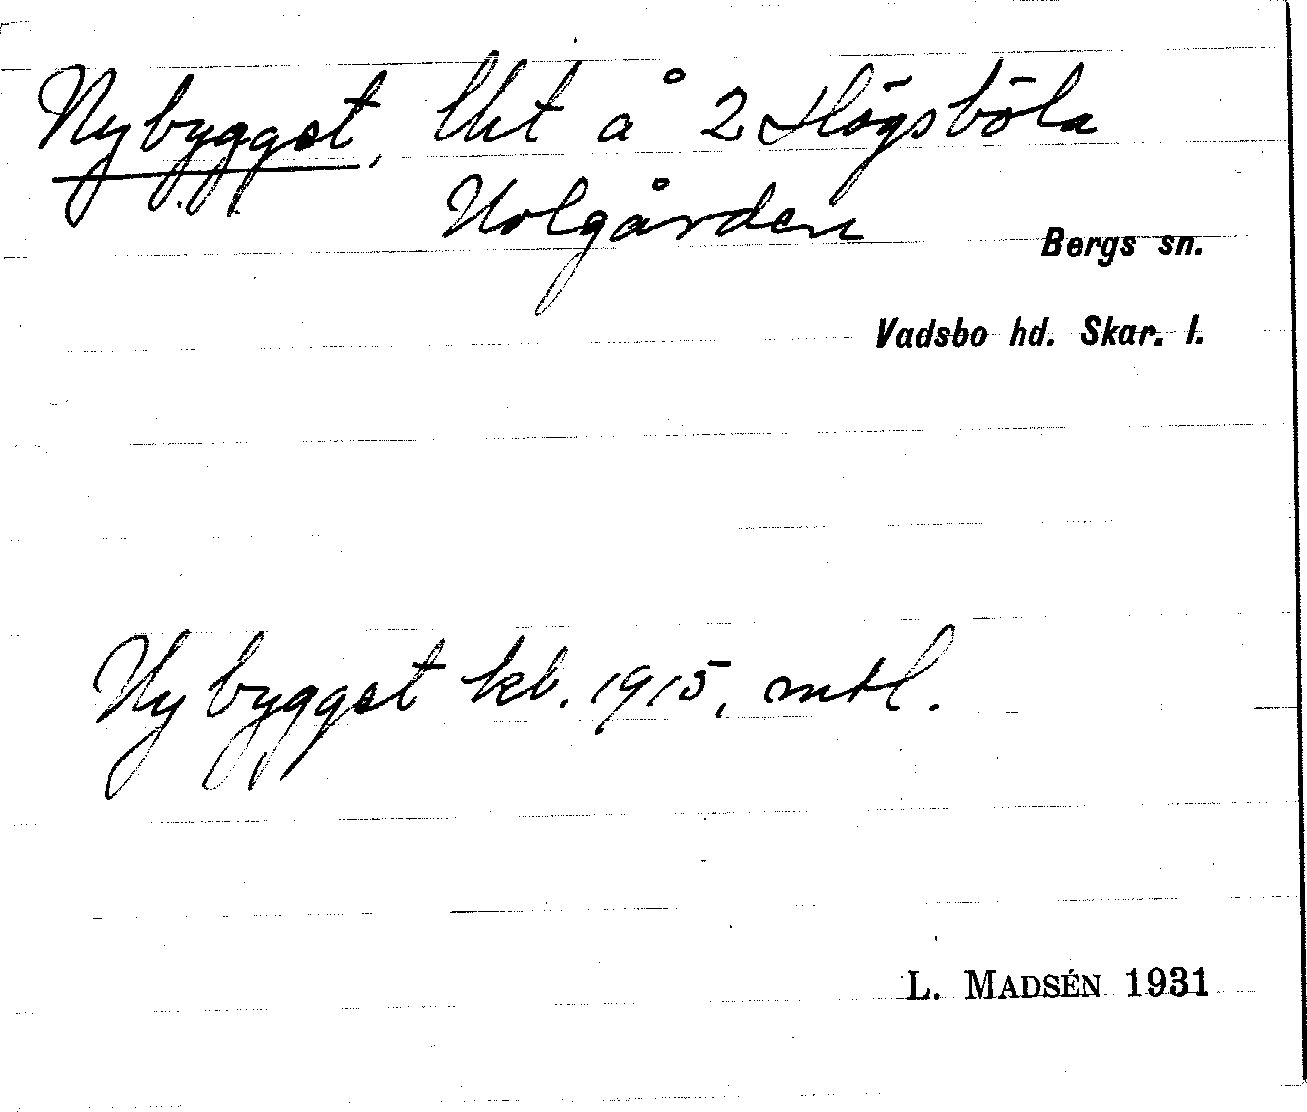 Nybygget, lht å 2 Högsböla
Holgården
Bergs sn.
Vadsbo hd. Skar. l.
Nybygget kb. 1915, mtl.
L. MADSÉN 1931